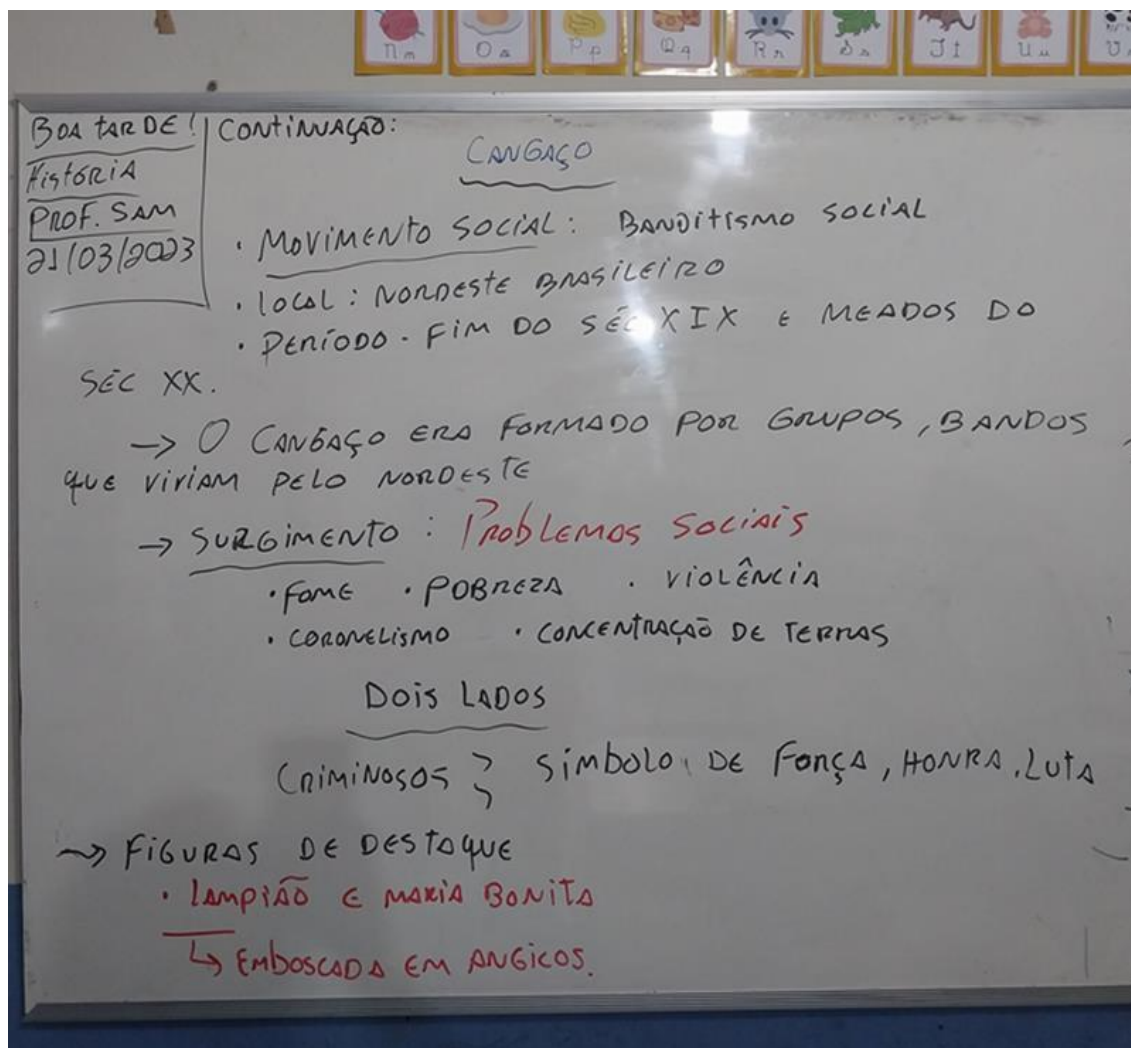 Nn Oo Pp Qq Rr Ss Tt Uu
BOA TARDE!
HISTÓRIA
PROF. SAM
21/03/2023
CONTINUAÇÃO:
CANGAÇO
• MOVIMENTO SOCIAL: BANDITISMO SOCIAL
• LOCAL: NORDESTE BRASILEIRO
• PERÍODO. FIM DO SÉC XIX E MEADOS DO
SÉC XX.
→ O CANGAÇO ERA FORMADO POR GRUPOS, BANDOS,
QUE VIVIAM PELO NORDESTE
→ SURGIMENTO: PROBLEMAS SOCIAIS
• FOME • POBREZA • VIOLÊNCIA
• CORONELISMO • CONCENTRAÇÃO DE TERRAS
DOIS LADOS
CRIMINOSOS } SÍMBOLO DE FORÇA, HONRA, LUTA
→ FIGURAS DE DESTAQUE
• LAMPIÃO E MARIA BONITA
↳ EMBOSCADA EM ANGICOS.